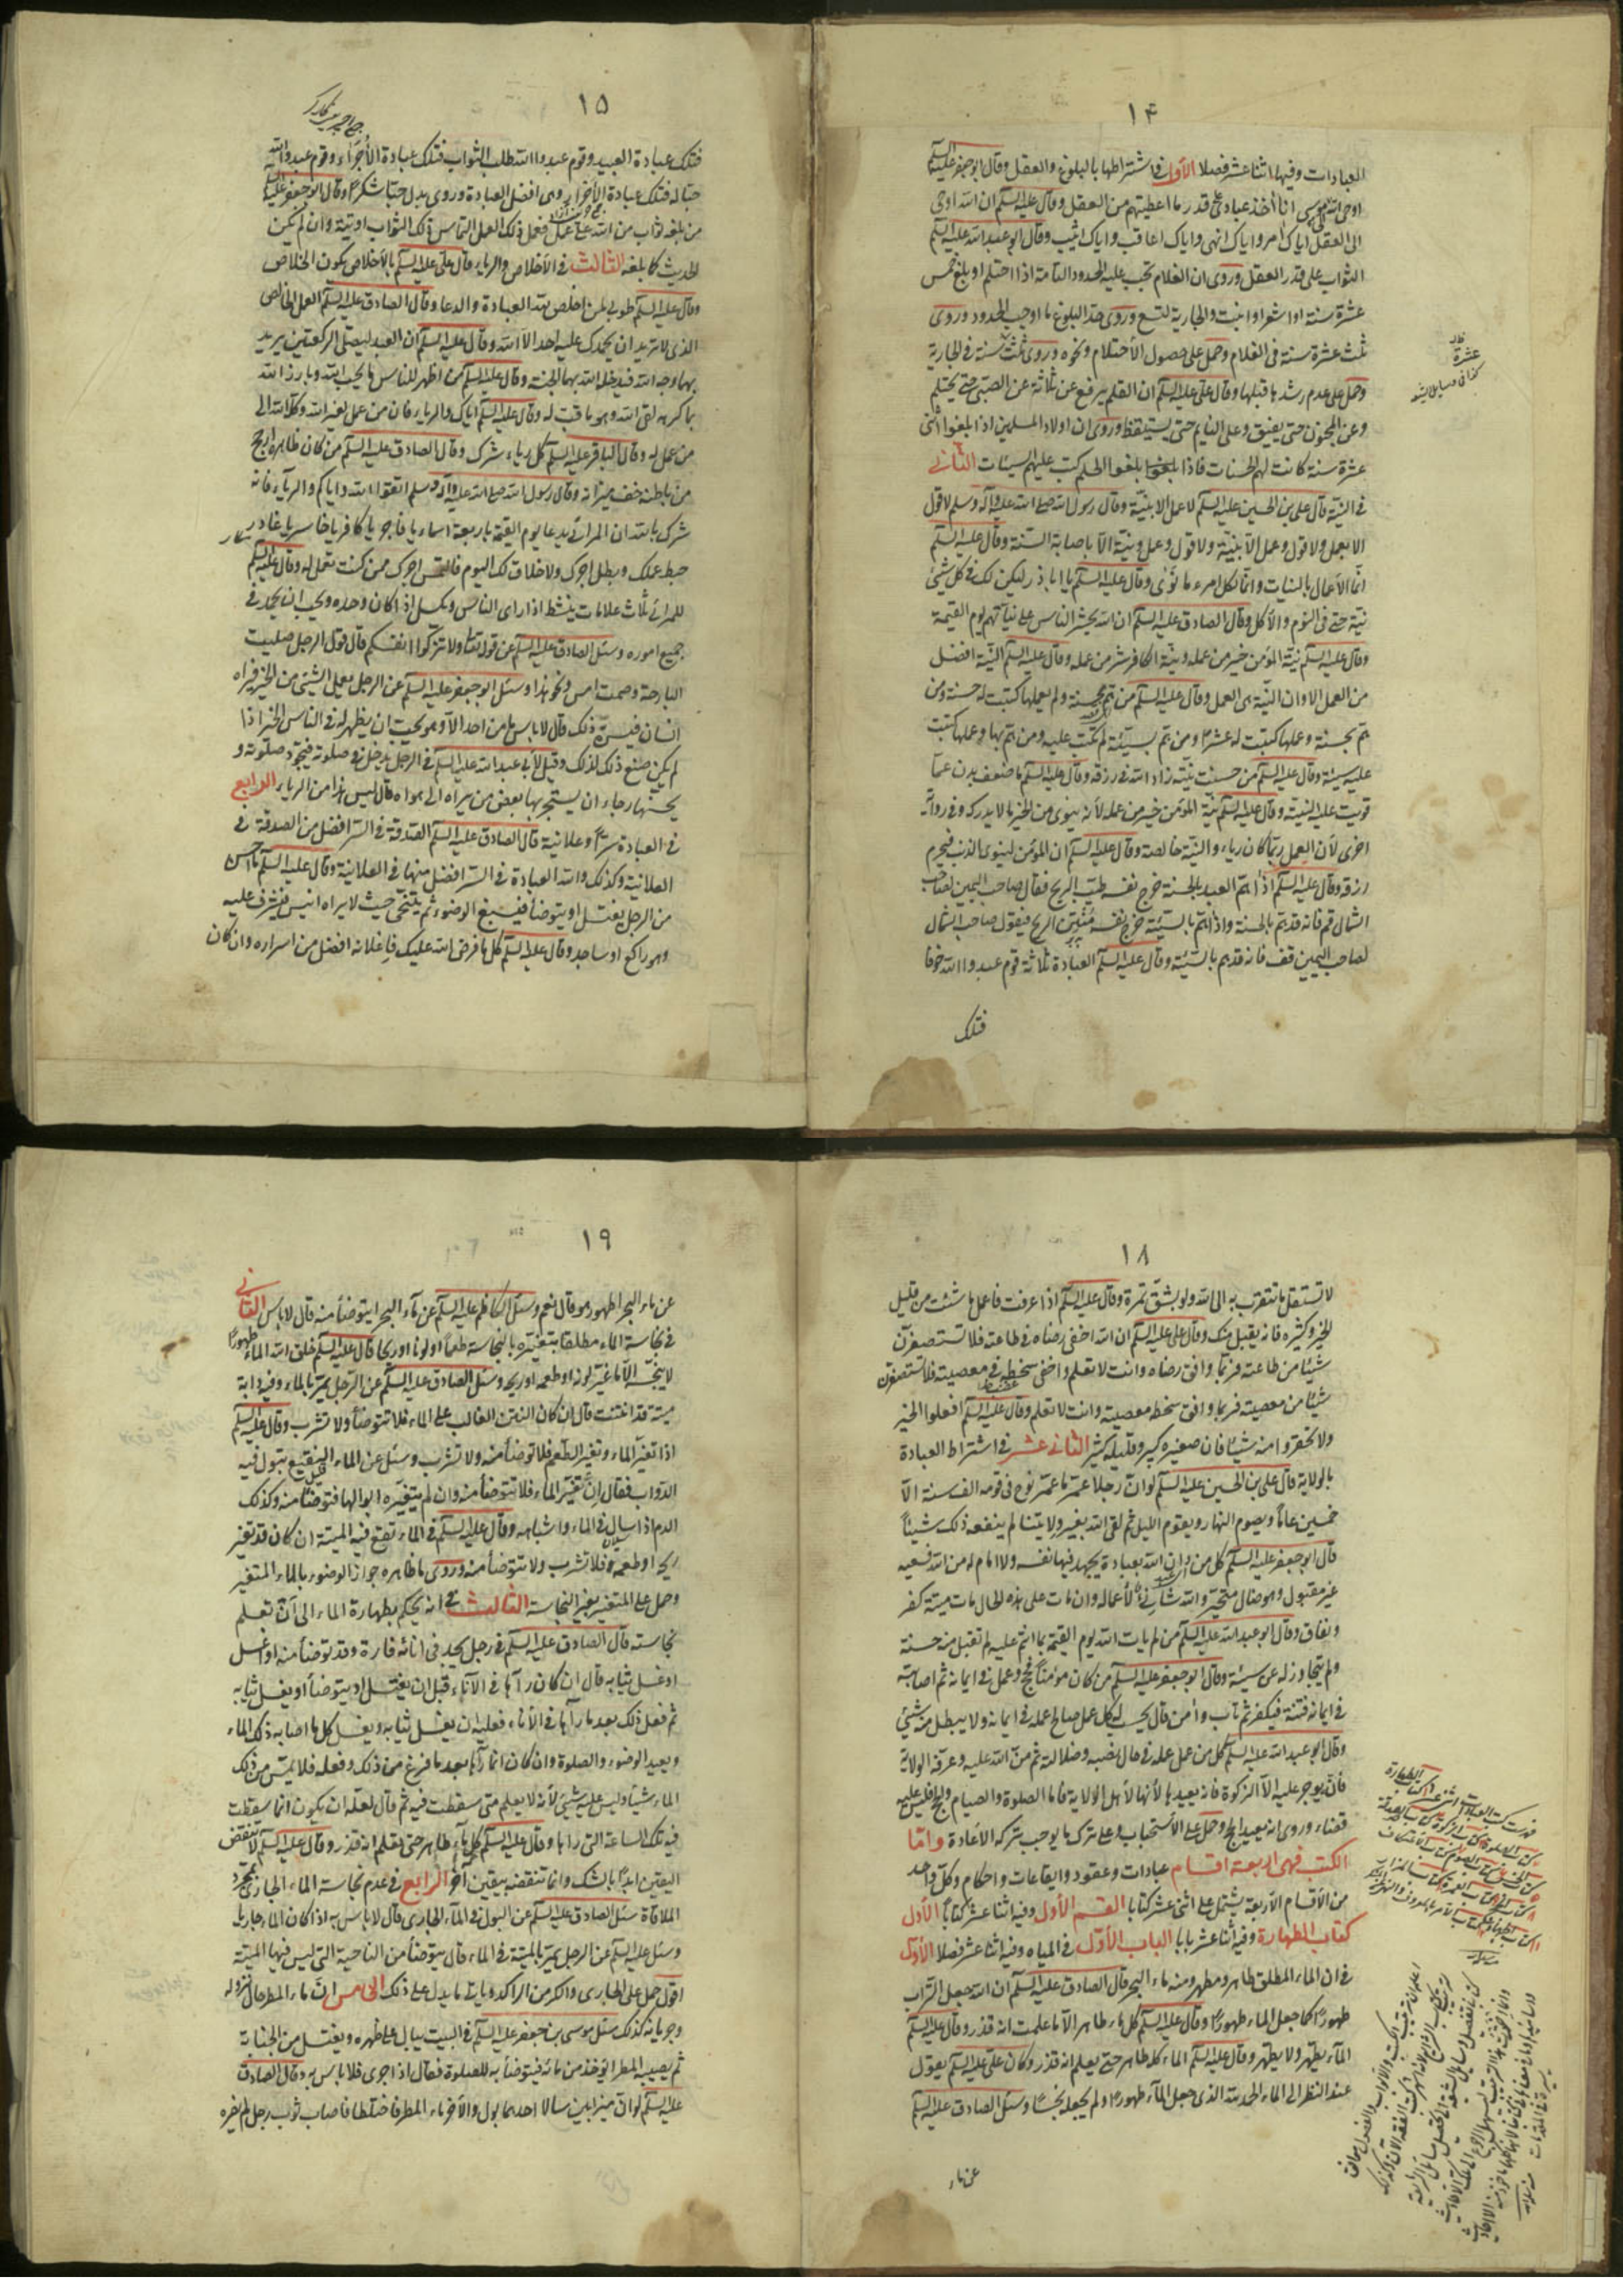 ١٤
العبادات وفيها اثنا عشر فصلا الأول في اشتراطها بالبلوغ والعقل وقال ابو جعفر عليه السلم
اوحى الله الى موسى انا أؤاخذ عبادي على قدر ما اعطيتهم من العقل وقال عليه السلم ان الله اوحى
الى العقل اياك آمر واياك انهى واياك اعاقب واياك اثيب وقال ابو عبد الله عليه السلم
الثواب على قدر العقل وروى ان الغلام تجب عليه الحدود التامة اذا احتلم او بلغ خمس
عشرة سنة او اشعر او انبت والجارية لتسع وروى حد البلوغ ما اوجب الحدود وروى
ثلث عشرة سنة في الغلام وحمل على حصول الأحتلام ونحوه وروى ثلث سنة في الجارية
وحمل على عدم رشدها قبلها وقال على عليه السلم ان القلم يرفع عن ثلاثة عن الصبي حتى يحتلم
وعن المجنون حتى يفيق وعلى النايم حتى يستيقظ وروى ان اولاد المسلمين اذا بلغوا اثنى
عشرة سنة كانت لهم الحسنات فاذا بلغوا الحلم كتب عليهم السيئات الثاني
في النية قال على بن الحسين عليه السلم لا عمل الا بنيّة وقال رسول الله صلى الله عليه وآله وسلم لا قول
الا بعمل ولا قول وعمل الا بنية ولا قول وعمل ونية الا باصابة السنة وقال عليه السلم
انما الأعمال بالنيات وانما لكل امرء ما نوى وقال عليه السلم يا ابا ذر ليكن لك في كل شئ
نية حتى في النوم والأكل وقال الصادق عليه السلم ان الله يحشر الناس على نياتهم يوم القيمة
وقال عليه السلم نية المؤمن خير من عمله ونية الكافر شر من عمله وقال عليه السلم النية افضل
من العمل الا وان النية هى العمل وقال عليه السلم من هم بحسنة ولم يعملها كتبت له حسنة ومن
هم بحسنة وعملها كتبت له عشرا ومن هم بسيئة لم تكتب عليه ومن هم بها وعملها كتبت
عليه سيئة وقال عليه السلم من حسنت نيته زاد الله في رزقه وقال عليه السلم ما ضعف بدن عما
قويت عليه النية وقال عليه السلم نية المؤمن خير من عمله لأنه ينوى من الخير ما لا يدركه وفي رواية
اخرى لأن العمل ربما كان رياء والنية خالصة وقال عليه السلم ان المؤمن لينوى الذنب فيحرم
رزقه وقال عليه السلم اذا هم العبد بالحسنة خرج نفسه طيب الريح فقال صاحب اليمين لصاحب
الشمال قم فانه قد هم بالحسنة واذا هم بالسيئة خرج نفسه منتن الريح فيقول صاحب الشمال
لصاحب اليمين قف فانه قد هم بالسيئة وقال عليه السلم العبادة ثلاثة قوم عبدوا الله خوفا
فتلك
عشرة
١٥
فتلك عبادة العبيد وقوم عبدوا الله طلب الثواب فتلك عبادة الأجراء وقوم عبدوا الله
حبا له فتلك عبادة الأحرار وهى افضل العبادة وروى بدل حبا شكرا وقال ابو جعفر عليه السلم
من بلغه ثواب من الله على عمل فعمل ذلك العمل التماس ذلك الثواب اوتيه وان لم يكن
الحديث كما بلغه الثالث في الأخلاص والرياء قال على عليه السلم بالأخلاص يكون الخلاص
وقال عليه السلم طوبى لمن اخلص لله العبادة والدعاء وقال الصادق عليه السلم العمل الخالص
الذى لا تريد ان يحمدك عليه احد الا الله وقال عليه السلم ان العبد ليصلى الركعتين يريد
بها وجه الله فيدخله الله بهما الجنة وقال عليه السلم من اظهر للناس ما يحب الله وبارز الله
بما كرهه لقى الله وهو ماقت له وقال عليه السلم اياك والرياء فان من عمل لغير الله وكله الله الى
من عمل له وقال الباقر عليه السلم كل رياء شرك وقال الصادق عليه السلم من كان ظاهره ارجح
من باطنه خف ميزانه وقال رسول الله صلى الله عليه وآله وسلم اتقوا الله واياكم والرياء فانه
شرك بالله ان المرائي يدعا يوم القيمة باربعة اسماء يا فاجر يا كافر يا خاسر يا غادر
حبط عملك وبطل اجرك ولا خلاق لك اليوم فالتمس اجرك ممن كنت تعمل له وقال عليه السلم
للمرائي ثلاث علامات ينشط اذا راى الناس ويكسل اذا كان وحده ويحب ان يحمد في
جميع اموره وسئل الصادق عليه السلم عن قوله تعا ولا تزكوا انفسكم قال قول الرجل صليت
البارحة وصمت امس ونحو هذا وسئل ابو جعفر عليه السلم عن الرجل يعمل الشئ من الخير فيراه
انسان فيسره ذلك قال لا باس ما من احد الا وهو يحب ان يظهر له في الناس الخير اذا
لم يكن صنع ذلك لذلك وقيل لأبى عبد الله عليه السلم في الرجل يدخل في صلوته فيجود صلوته و
يحسنها رجاء ان يستجر بها بعض من يراه الى هواه قال ليس هذا من الرياء الرابع
في العبادة سرا وعلانية قال الصادق عليه السلم الصدقة في السر افضل من الصدقة في
العلانية وكذلك والله العبادة في السر افضل منها في العلانية وقال عليه السلم ما احسن
من الرجل يغتسل او يتوضأ فيسبغ الوضوء ثم يتنحى حيث لا يراه انيس فيشرف عليه
وهو راكع او ساجد وقال عليه السلم كل ما فرض الله عليك فاعلانه افضل من اسراره وان كان
١٨
لا تستقل ما تتقرب به الى الله ولو بشق تمرة وقال عليه السلم اذا عرفت فاعمل ما شئت من قليل
الخير وكثيره فانه يقبل منك وقال على عليه السلم ان الله اخفى رضاه في طاعته فلا تستصغرن
شيئا من طاعته فربما وافق رضاه وانت لا تعلم واخفى سخطه في معصيته فلا تستصغرن
شيئا من معصيته فربما وافق سخطه معصيته وانت لا تعلم وقال عليه السلم افعلوا الخير
ولا تحقروا منه شيئا فان صغيره كبير وقليله كثير الثاني عشر في اشتراط العبادة
بالولاية قال على بن الحسين عليه السلم لو ان رجلا عمر ما عمر نوح في قومه الف سنة الا
خمسين عاما ويصوم النهار ويقوم الليل ثم لقى الله بغير ولايتنا لم ينفعه ذلك شيئا
قال ابو جعفر عليه السلم كل من دان الله بعبادة يجهد فيها نفسه ولا امام له من الله فسعيه
غير مقبول وهو ضال متحير والله شانئ لأعماله وان مات على هذه الحال مات ميتة كفر
ونفاق وقال ابو عبد الله عليه السلم من لم يات الله يوم القيمة بما انتم عليه لم تقبل منه حسنة
ولم يتجاوز له عن سيئة وقال ابو جعفر عليه السلم من كان مؤمنا فحج وعمل في ايمانه ثم اصابته
في ايمانه فتنة فيكفر ثم تاب وآمن قال يحسب له كل عمل صالح عمله في ايمانه ولا يبطل منه شئ
وقال ابو عبد الله عليه السلم كل من عمل عمله في حال نصبه وضلالته ثم من الله عليه وعرفه الولاية
فانه يوجر عليه الا الزكوة فانه يعيدها لأنها لأهل الولاية فاما الصلوة والصيام والحج فليس عليه
قضاء وروى انه يعيد الحج وحمل على الأستحباب وعلى ترك ما يوجب تركه الأعادة واما
الكتب فهى اربعة اقسام عبادات وعقود وايقاعات واحكام وكل واحد
من الأقسام الأربعة يشتمل على اثنى عشر كتابا القسم الأول وفيه اثنا عشر كتابا الأول
كتاب الطهارة وفيه اثنا عشر بابا الباب الأول في المياه وفيه اثنا عشر فصلا الأول
في ان الماء المطلق طاهر ومطهر ومنه ماء البحر قال الصادق عليه السلم ان الله جعل التراب
طهورا كما جعل الماء طهورا وقال عليه السلم كل ماء طاهر الا ما علمت انه قذر وقال عليه السلم
الماء يطهر ولا يطهر وقال عليه السلم الماء كله طاهر حتى يعلم انه قذر وكان على عليه السلم يقول
عند النظر الى الماء الحمد لله الذى جعل الماء طهورا ولم يجعله نجسا وسئل الصادق عليه السلم
عن ماء
١٩
عن ماء البحر اطهور هو قال نعم وسئل الكاظم عليه السلم عن ماء البحر ايتوضأ منه قال لا باس الثاني
في نجاسة الماء مطلقا بتغيره بالنجاسة طعما او لونا او ريحا قال عليه السلم خلق الله الماء طهورا
لا ينجسه الا ما غير لونه او طعمه او ريحه وسئل الصادق عليه السلم عن الرجل يمر بالماء وفيه دابة
ميتة قد انتنت قال ان كان النتن الغالب على الماء فلا تتوضأ ولا تشرب وقال عليه السلم
اذا تغير الماء وتغير الطعم فلا توضأ منه ولا تشرب وسئل عن الماء النقيع تبول فيه
الدواب فقال ان تغير الماء فلا تتوضأ منه وان لم يتغيره ابوالها فتوضأ منه وكذلك
الدم اذا سال في الماء واشباهه وقال عليه السلم في الماء تقع فيه الميتة ان كان قد تغير
ريحه او طعمه فلا تشرب ولا تتوضأ منه وروى ما ظاهره جواز الوضوء بالماء المتغير
وحمل على المتغير بغير النجاسة الثالث في انه يحكم بطهارة الماء الى ان تعلم
نجاسته قال الصادق عليه السلم في رجل يجد في انائه فارة وقد توضأ منه او اغتسل
او غسل ثيابه قال ان كان رآها في الأناء قبل ان يغتسل او يتوضأ او يغسل ثيابه
ثم فعل ذلك بعد ما رآها في الأناء فعليه ان يغسل ثيابه ويغسل كل ما اصابه ذلك الماء
ويعيد الوضوء والصلوة وان كان انما رآها بعد ما فرغ من ذلك وفعله فلا يمس من ذلك
الماء شيئا وليس عليه شئ لأنه لا يعلم متى سقطت فيه ثم قال لعله ان يكون انما سقطت
فيه تلك الساعة التى رآها وقال عليه السلم كل ماء طاهر حتى تعلم انه قذر وقال عليه السلم لا تنقض
اليقين ابدا بالشك وانما تنقضه بيقين آخر الرابع في عدم نجاسة الماء الجارى بمجرد
الملاقاة سئل الصادق عليه السلم عن البول في الماء الجارى قال لا باس به اذا كان الماء جاريا
وسئل عليه السلم عن الرجل يمر بالميتة في الماء قال يتوضأ من الناحية التى ليس فيها الميتة
اقول حمل على الجارى والكر من الراكد وياتى ما يدل على ذلك الخامس ان ماء المطر حال نزوله
وجريانه كذلك سئل موسى بن جعفر عليه السلم في البيت يبال على ظهره ويغتسل من الجنابة
ثم يصيبه المطر ايؤخذ من مائه فيتوضأ به للصلوة فقال اذا جرى فلا باس به وقال الصادق
عليه السلم لو ان ميزابين سالا احدهما بول والآخر ماء المطر فاختلطا فاصاب ثوب رجل لم يضره